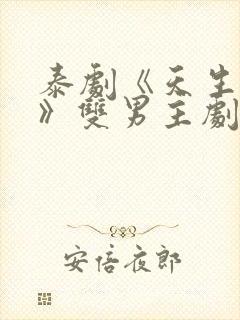 泰劇《天生
》雙男主劇
安倍夜郎